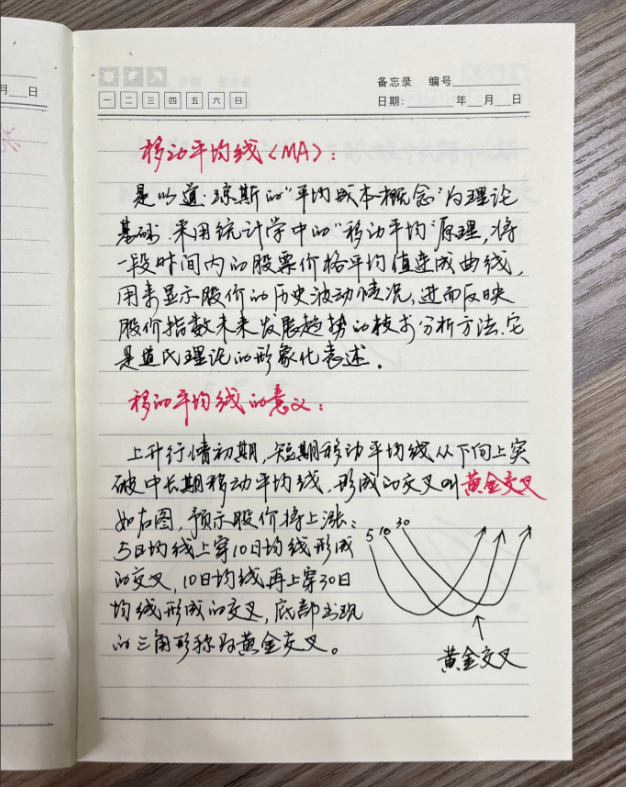 备忘录 编号
一 二 三 四 五 六 日
日期: 年 月 日
月 日
移动平均线(MA):
是以道·琼斯的"平均成本概念"为理论
基础,采用统计学中的"移动平均"原理,将
一段时间内的股票价格平均值连成曲线,
用来显示股价的历史波动情况,进而反映
股价指数未来发展趋势的技术分析方法.它
是道氏理论的形象化表述。
移动平均线的意义:
上升行情初期,短期移动平均线从下向上突
破中长期移动平均线,形成的交叉叫黄金交叉
如右图,预示股价将上涨:
5日均线上穿10日均线形成
的交叉,10日均线再上穿30日
均线形成的交叉,底部出现
的三角形称为黄金交叉。
5 10 30
黄金交叉